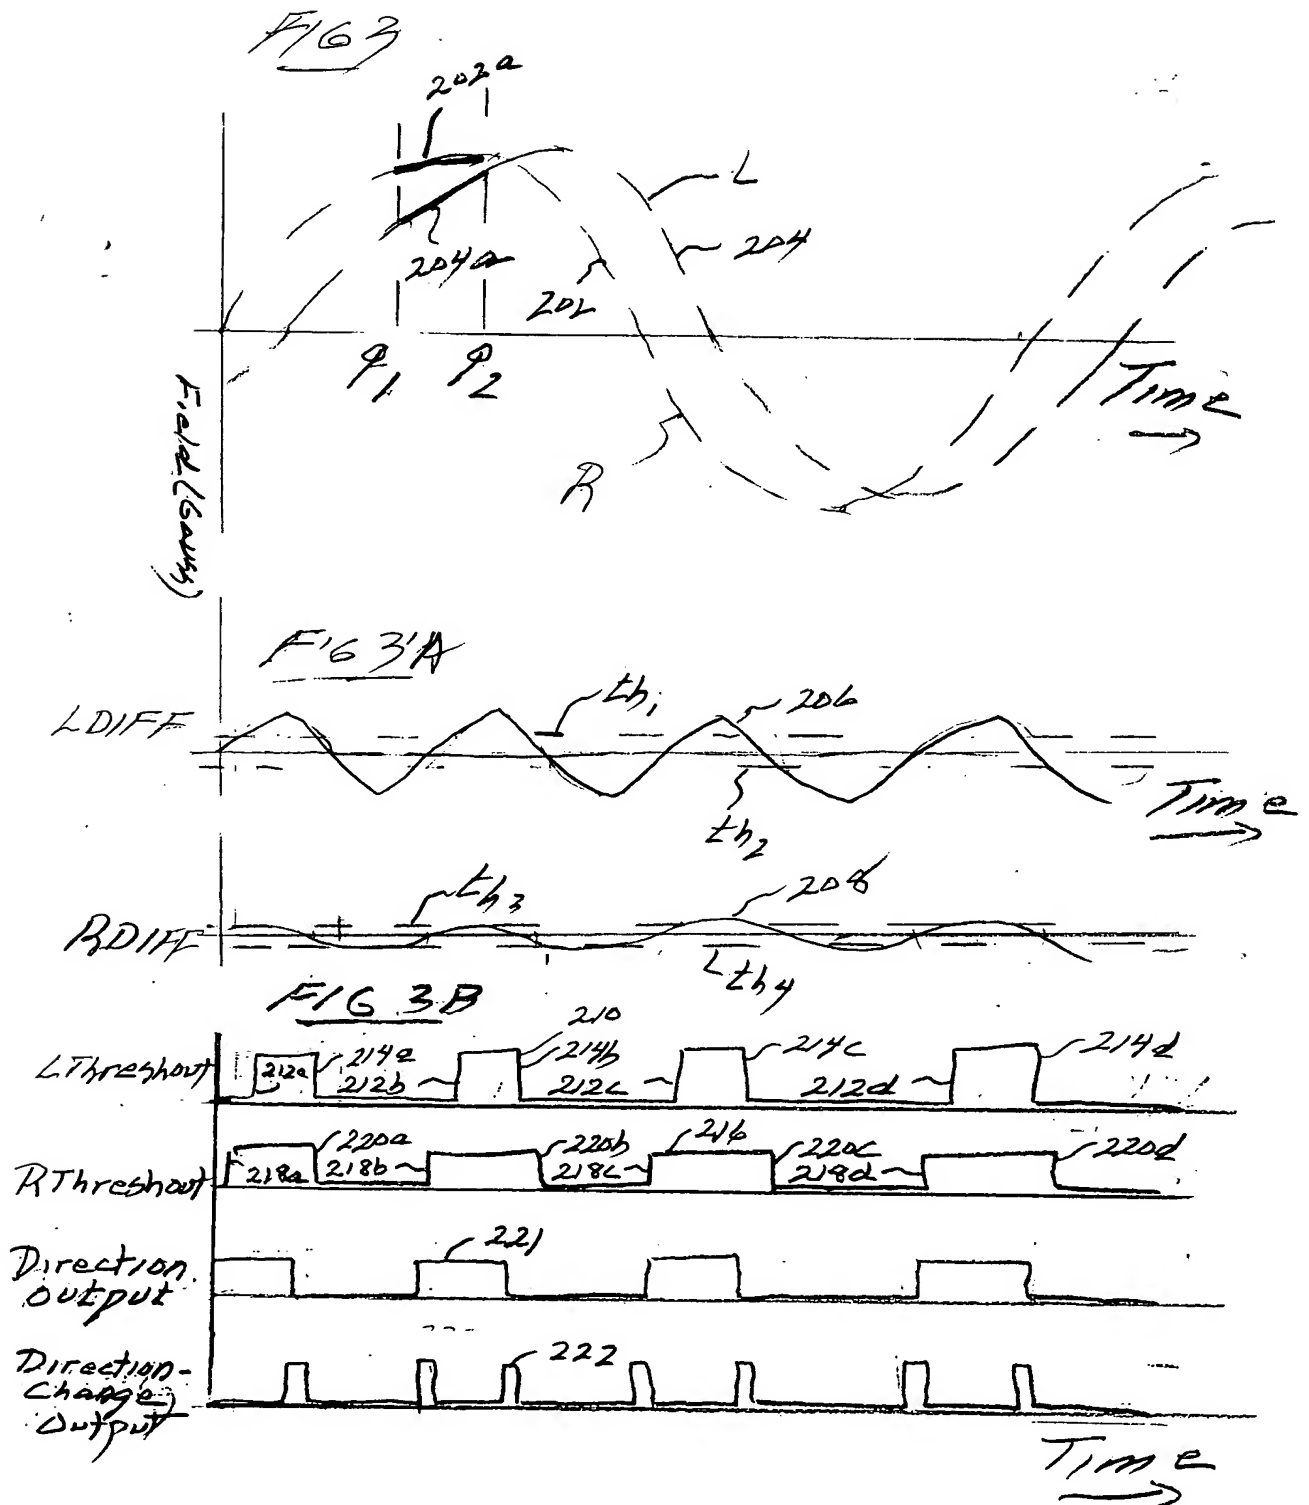 FIG 3
202a
L
204
204a
202
φ1
φ2
Time
Field (Gauss)
R
FIG 3A
LDIFF
th1
206
th2
Time
RDIFF
th3
208
th4
FIG 3B
210
LThreshout
212a
214a
212b
214b
212c
214c
212d
214d
RThreshout
218a
220a
218b
220b
218c
216
220c
218d
220d
Direction
Output
221
Direction-
Change
Output
222
Time